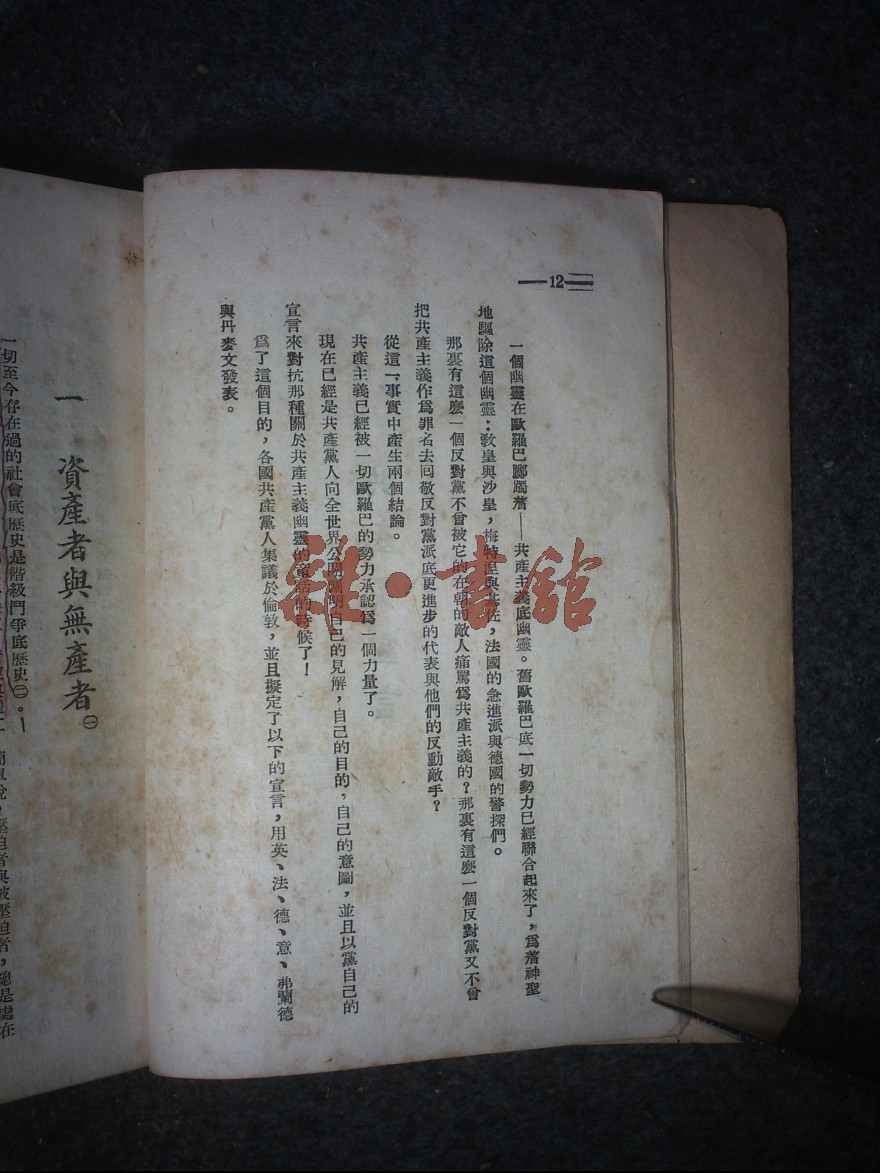 12
一個幽靈在歐羅巴躑躅着——共產主義底幽靈。舊歐羅巴底一切勢力已經聯合起來了，爲着神聖
地驅除這個幽靈：敎皇與沙皇，梅特涅與基佐，法國的急進派與德國的警探們。
那裏有這麽一個反對黨不曾被它的在朝的敵人痛罵爲共產主義的？那裏有這麽一個反對黨又不曾
把共產主義作爲罪名去回敬反對黨派底更進步的代表與他們的反動敵手？
從這一事實中產生兩個結論。
共產主義已經被一切歐羅巴的勢力承認爲一個力量了。
現在已經是共產黨人向全世界公開闡明自己的見解，自己的目的，自己的意圖，並且以黨自己的
宣言來對抗那種關於共產主義幽靈的童話的時候了！
爲了這個目的，各國共產黨人集議於倫敦，並且擬定了以下的宣言，用英、法、德、意、弗蘭德
與丹麥文發表。
雜·書館
一 資產者與無產者㊀
一切至今存在過的社會底歷史是階級鬥爭底歷史㊁。
簡單說，壓迫者與被壓迫者，總是處在